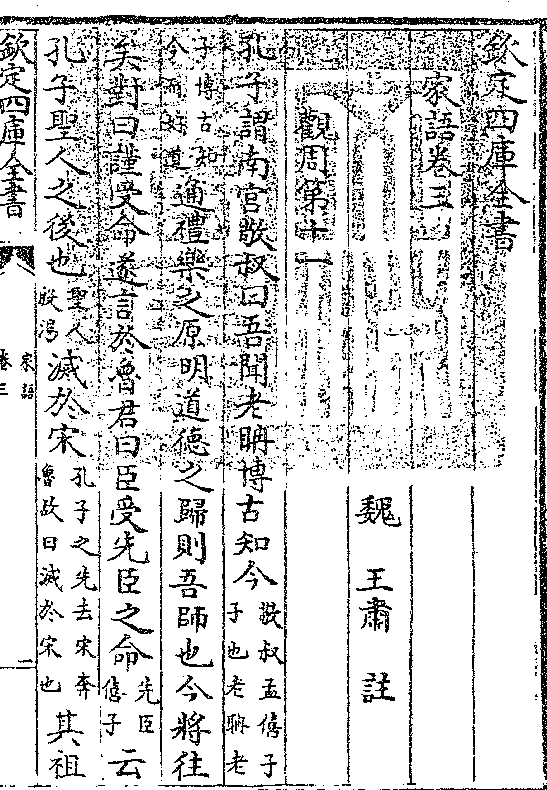 欽定四庫全書
家語卷三
魏 王肅 註
觀周第十一
孔子謂南宮敬叔曰吾聞老聃博古知今敬叔孟僖子
子也老聃老
子博古知
今而好道通禮樂之原明道德之歸則吾師也今將往
矣對曰謹受命遂言於魯君曰臣受先臣之命先臣
僖子云
孔子聖人之後也聖人
殷湯滅於宋孔子之先去宋奔
魯故曰滅於宋也其祖
欽定四庫全書
家語
卷三